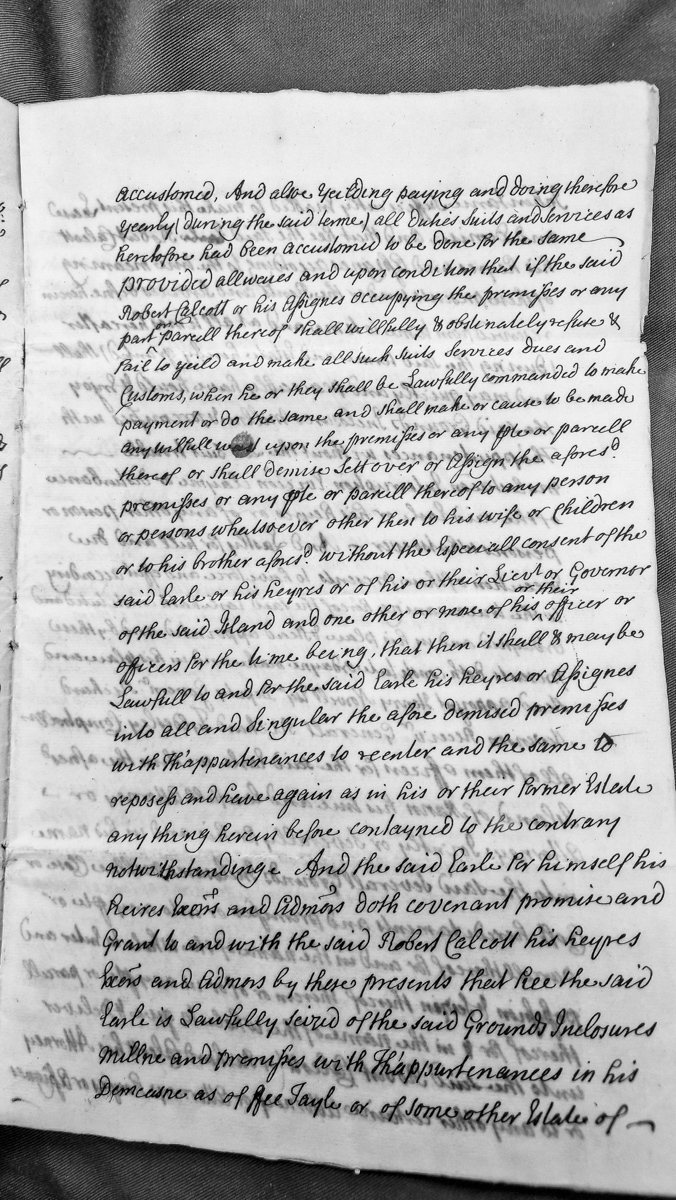 accustomed, And alsoe Yeilding paying and doing therefore
yearly (during the said terme) all duties suits and services as
heretofore had been accustomed to be done for the same
provided allwaies and upon condition that if the said
Robert Calcott or his Assignes occupying the premisses or any
part or parcell thereof shall willfully & obstinately refuse &
fail to yeild and make all such suits Services dues and
Customs, when he or they shall be Lawfully commanded to make
payment or do the same and shall make or cause to be made
any willfull wast upon the premisses or any pte or parcell
thereof or shall demise sett over or Assign the aforesd.
premisses or any pte or parcell thereof to any person
or persons whatsoever other then to his wife or Children
or to his brother aforesd. without the Especiall consent of the
said Earle or his heyres or of his or their Lievt or Governor
of the said Island and one other or more of his or their officer or
officers for the time being, that then it shall & may be
Lawfull to and for the said Earle his heyres or Assignes
into all and Singular the afore demised premisses
with Th'appurtenances to reenter and the same to
reposess and have again as in his or their former Estate
any thing herein before contayned to the contrary
notwithstandinge And the said Earle for himself his
heires Exors and Admors doth covenant promise and
Grant to and with the said Robert Calcott his heyres
Exors and Admors by these presents that hee the said
Earle is Lawfully seized of the said Grounds Inclosures
Millne and premisses with Th'appurtenances in his
Demeasne as of ffee Tayle or of some other Estate of